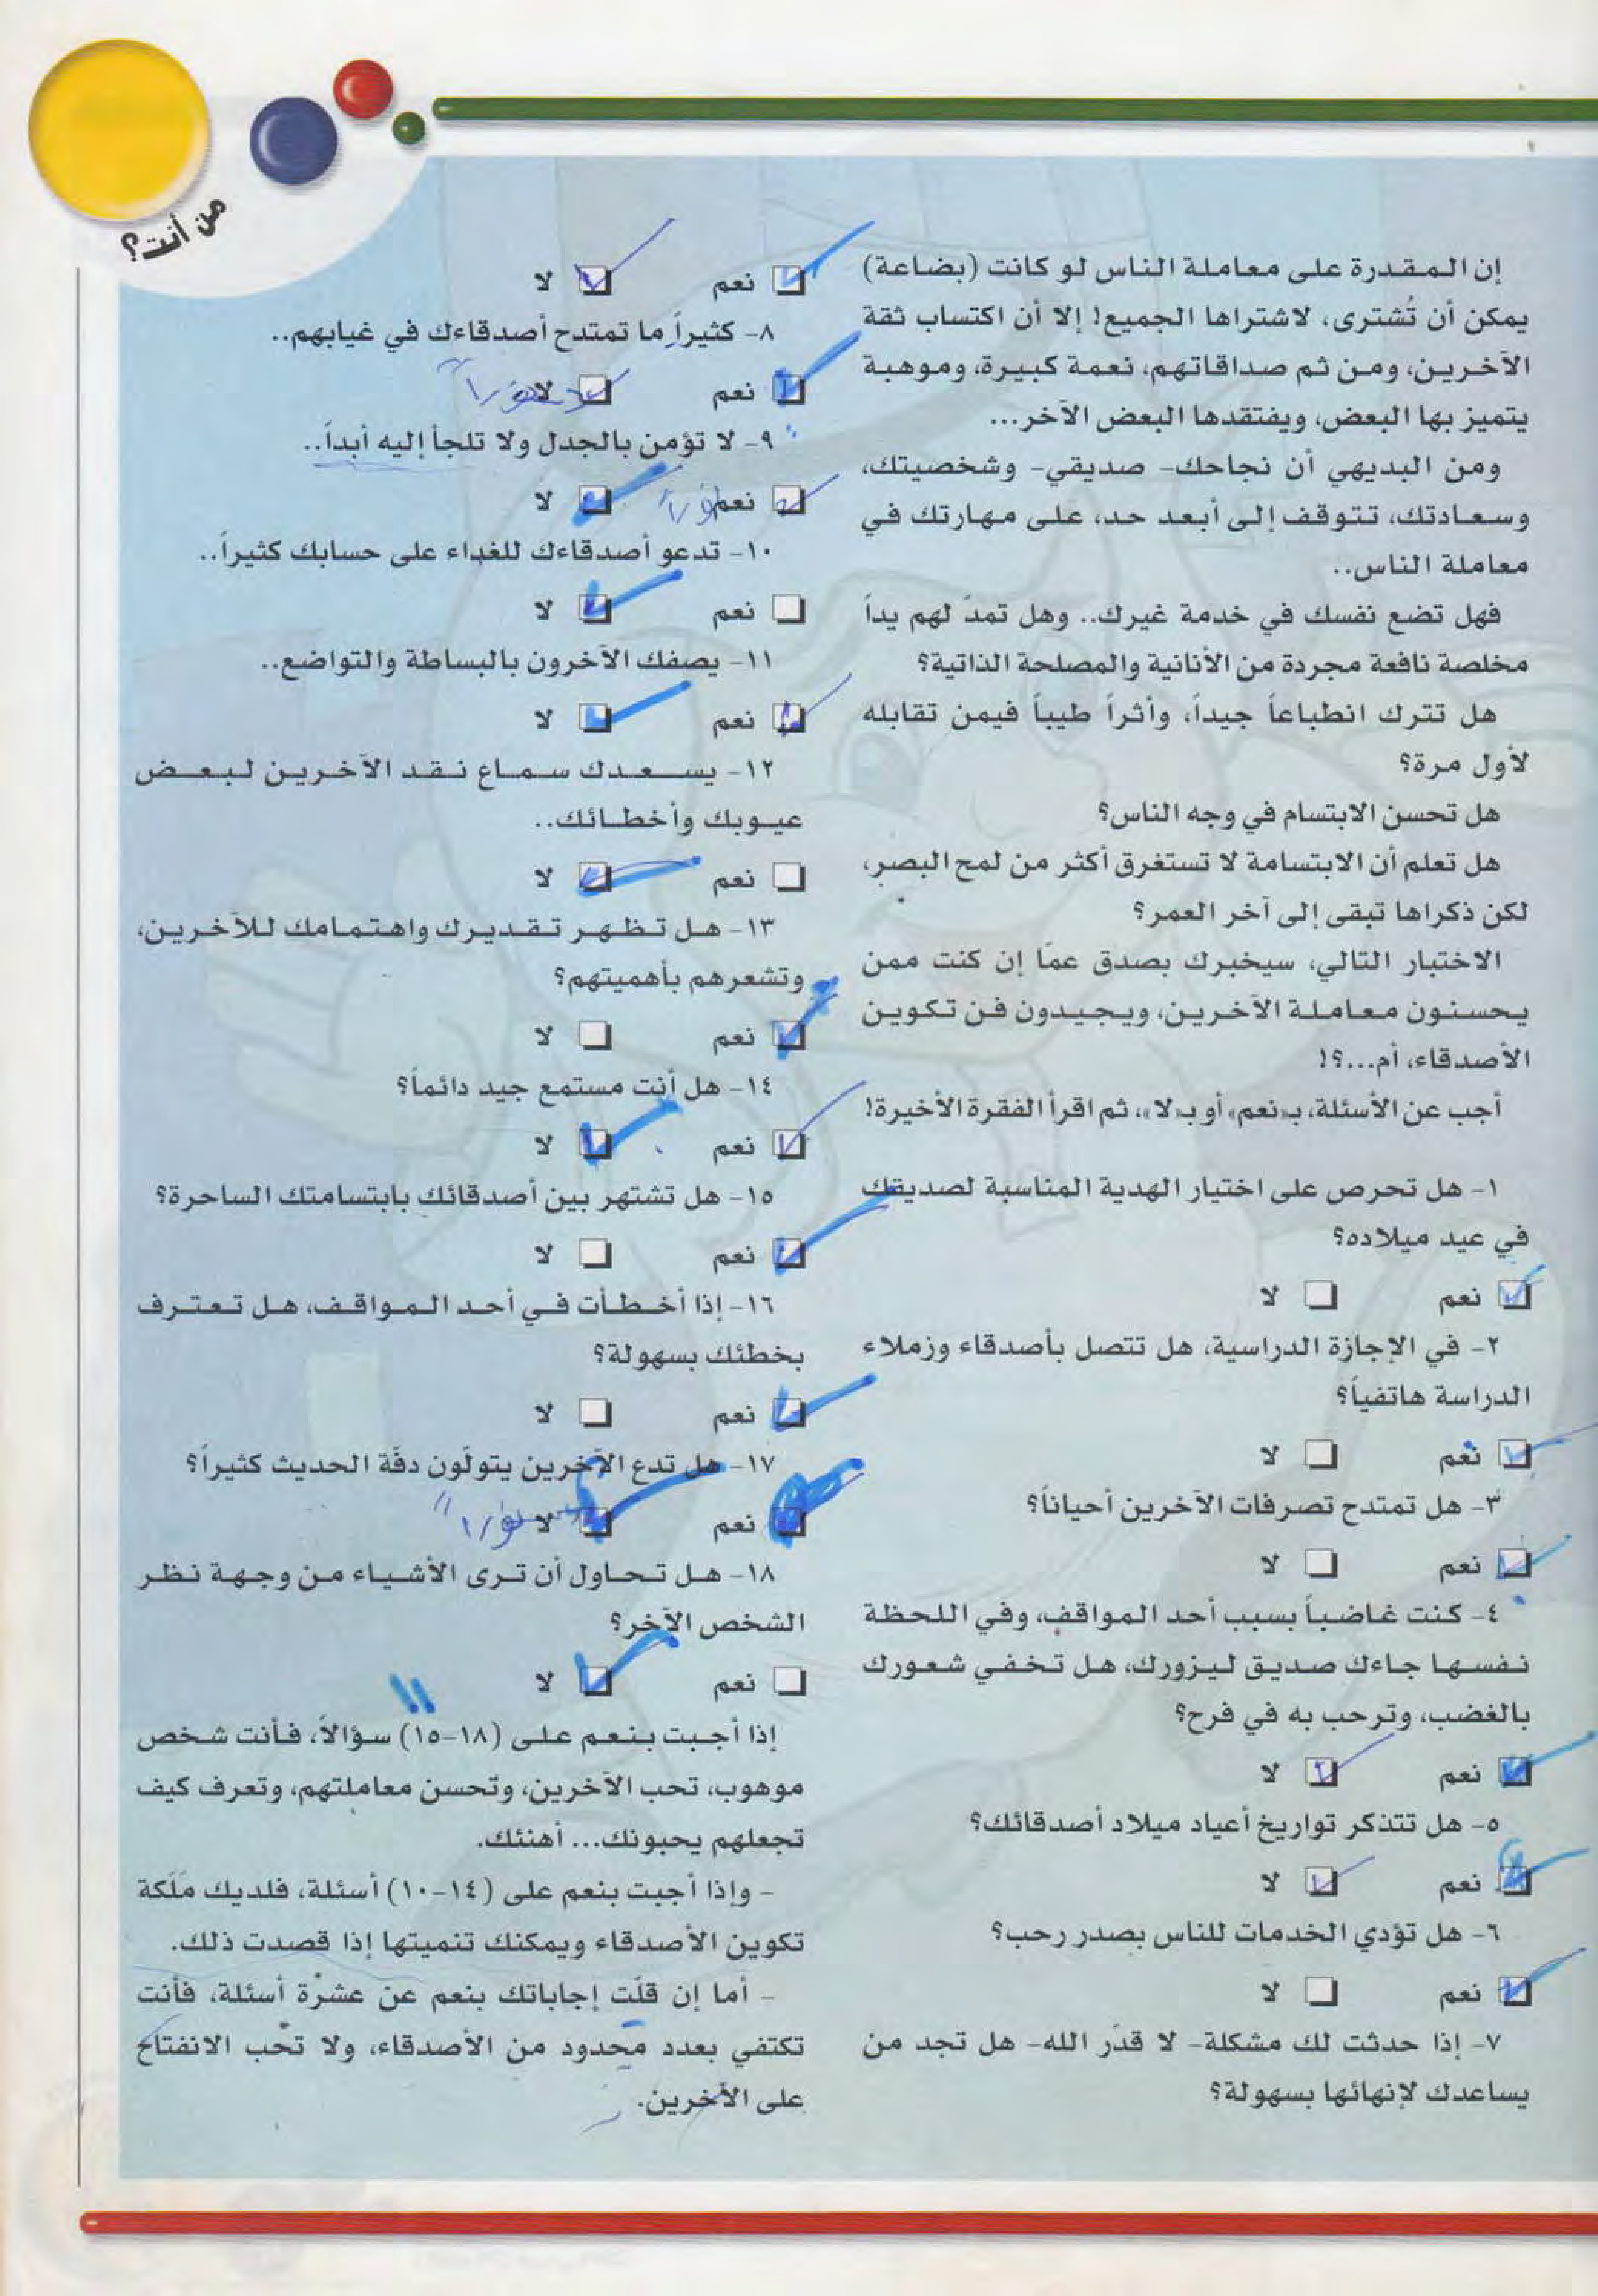 من أنت؟
إن المقدرة على معاملة الناس لو كانت (بضاعة)
يمكن أن تُشترى، لاشتراها الجميع! إلا أن اكتساب ثقة
الآخرين، ومن ثم صداقاتهم، نعمة كبيرة، وموهبة
يتميز بها البعض، ويفتقدها البعض الآخر...
ومن البديهي أن نجاحك- صديقي- وشخصيتك،
وسعادتك، تتوقف إلى أبعد حد، على مهارتك في
معاملة الناس..
فهل تضع نفسك في خدمة غيرك.. وهل تمدّ لهم يداً
مخلصة نافعة مجردة من الأنانية والمصلحة الذاتية؟
هل تترك انطباعاً جيداً، وأثراً طيباً فيمن تقابله
لأول مرة؟
هل تحسن الابتسام في وجه الناس؟
هل تعلم أن الابتسامة لا تستغرق أكثر من لمح البصر،
لكن ذكراها تبقى إلى آخر العمر؟
الاختبار التالي، سيخبرك بصدق عمّا إن كنت ممن
يحسنون معاملة الآخرين، ويجيدون فن تكوين
الأصدقاء، أم...؟!
أجب عن الأسئلة، بـ«نعم» أو بـ«لا»، ثم اقرأ الفقرة الأخيرة!
١- هل تحرص على اختيار الهدية المناسبة لصديقك
في عيد ميلاده؟
نعم لا
٢- في الإجازة الدراسية، هل تتصل بأصدقاء وزملاء
الدراسة هاتفياً؟
نعم لا
٣- هل تمتدح تصرفات الآخرين أحياناً؟
نعم لا
٤- كنت غاضباً بسبب أحد المواقف، وفي اللحظة
نفسها جاءك صديق ليزورك، هل تخفي شعورك
بالغضب، وترحب به في فرح؟
نعم لا
٥- هل تتذكر تواريخ أعياد ميلاد أصدقائك؟
نعم لا
٦- هل تؤدي الخدمات للناس بصدر رحب؟
نعم لا
٧- إذا حدثت لك مشكلة- لا قدّر الله- هل تجد من
يساعدك لإنهائها بسهولة؟
نعم لا
٨- كثيراً ما تمتدح أصدقاءك في غيابهم..
نعم لا
٩- لا تؤمن بالجدل ولا تلجأ إليه أبداً..
نعم لا
١٠- تدعو أصدقاءك للغداء على حسابك كثيراً..
نعم لا
١١- يصفك الآخرون بالبساطة والتواضع..
نعم لا
١٢- يسعدك سماع نقد الآخرين لبعض
عيوبك وأخطائك..
نعم لا
١٣- هل تظهر تقديرك واهتمامك للآخرين،
وتشعرهم بأهميتهم؟
نعم لا
١٤- هل أنت مستمع جيد دائماً؟
نعم لا
١٥- هل تشتهر بين أصدقائك بابتسامتك الساحرة؟
نعم لا
١٦- إذا أخطأت في أحد المواقف، هل تعترف
بخطئك بسهولة؟
نعم لا
١٧- هل تدع الآخرين يتولّون دفّة الحديث كثيراً؟
نعم لا
١٨- هل تحاول أن ترى الأشياء من وجهة نظر
الشخص الآخر؟
نعم لا
١١
إذا أجبت بنعم على (١٨-١٥) سؤالاً، فأنت شخص
موهوب، تحب الآخرين، وتحسن معاملتهم، وتعرف كيف
تجعلهم يحبونك... أهنئك.
- وإذا أجبت بنعم على (١٤-١٠) أسئلة، فلديك مَلَكة
تكوين الأصدقاء ويمكنك تنميتها إذا قصدت ذلك.
- أما إن قلّت إجاباتك بنعم عن عشرة أسئلة، فأنت
تكتفي بعدد محدود من الأصدقاء، ولا تحب الانفتاح
على الآخرين.